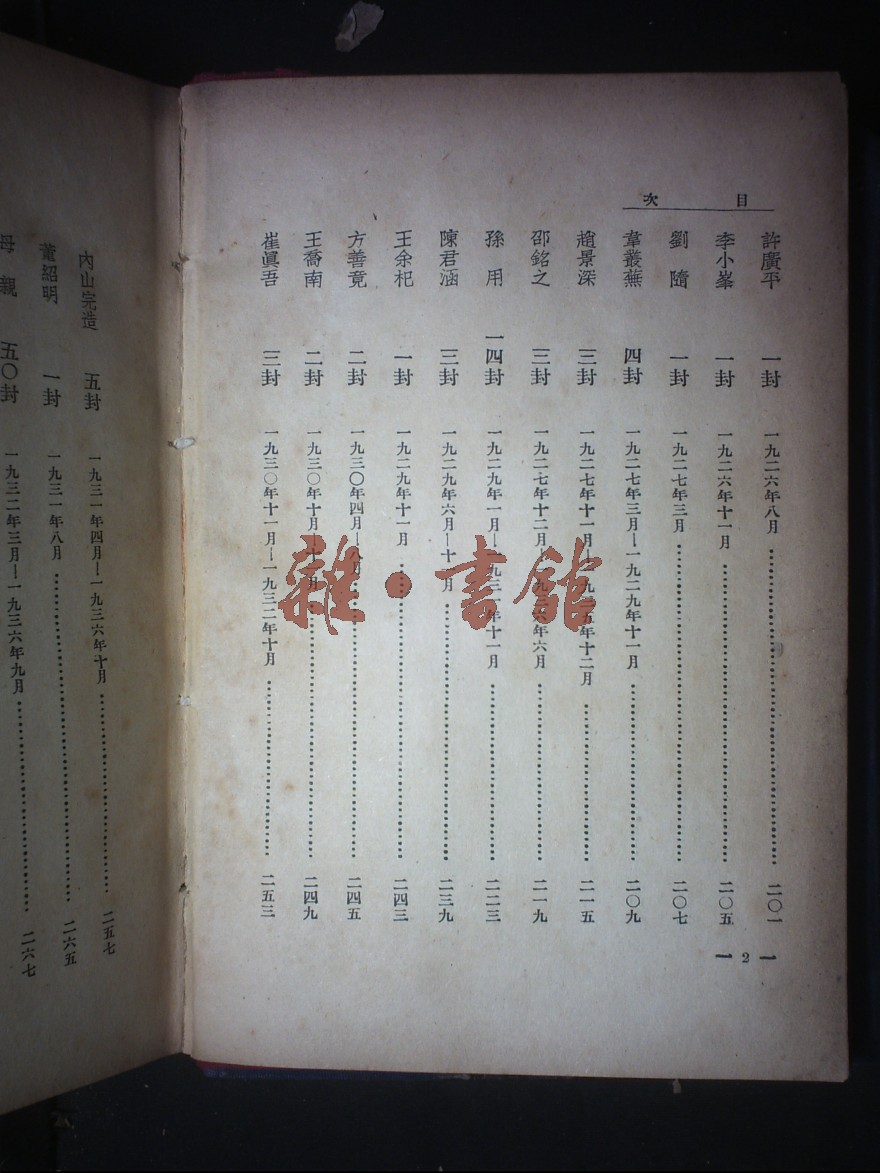 目次
許廣平 一封 一九二六年八月 二〇一
李小峯 一封 一九二六年十一月 二〇五
劉隨 一封 一九二七年三月 二〇七
韋叢蕪 四封 一九二七年三月—一九二九年十一月 二〇九
趙景深 三封 一九二七年十一月—一九三五年十二月 二一五
邵銘之 三封 一九二七年十二月—一九三六年六月 二一九
孫用 一四封 一九二九年一月—一九三一年十一月 二二三
陳君涵 三封 一九二九年六月—十一月 二三九
王余杞 一封 一九二九年十一月 二四三
方善竟 二封 一九三〇年四月—八月 二四五
王喬南 二封 一九三〇年十月—十一月 二四九
崔眞吾 三封 一九三〇年十一月—一九三二年十月 二五三
— 2 —
內山完造 五封 一九三一年四月—一九三六年十月 二五七
董紹明 一封 一九三一年八月 二六五
母親 五〇封 一九三二年三月—一九三六年九月 二六七
雜·書館